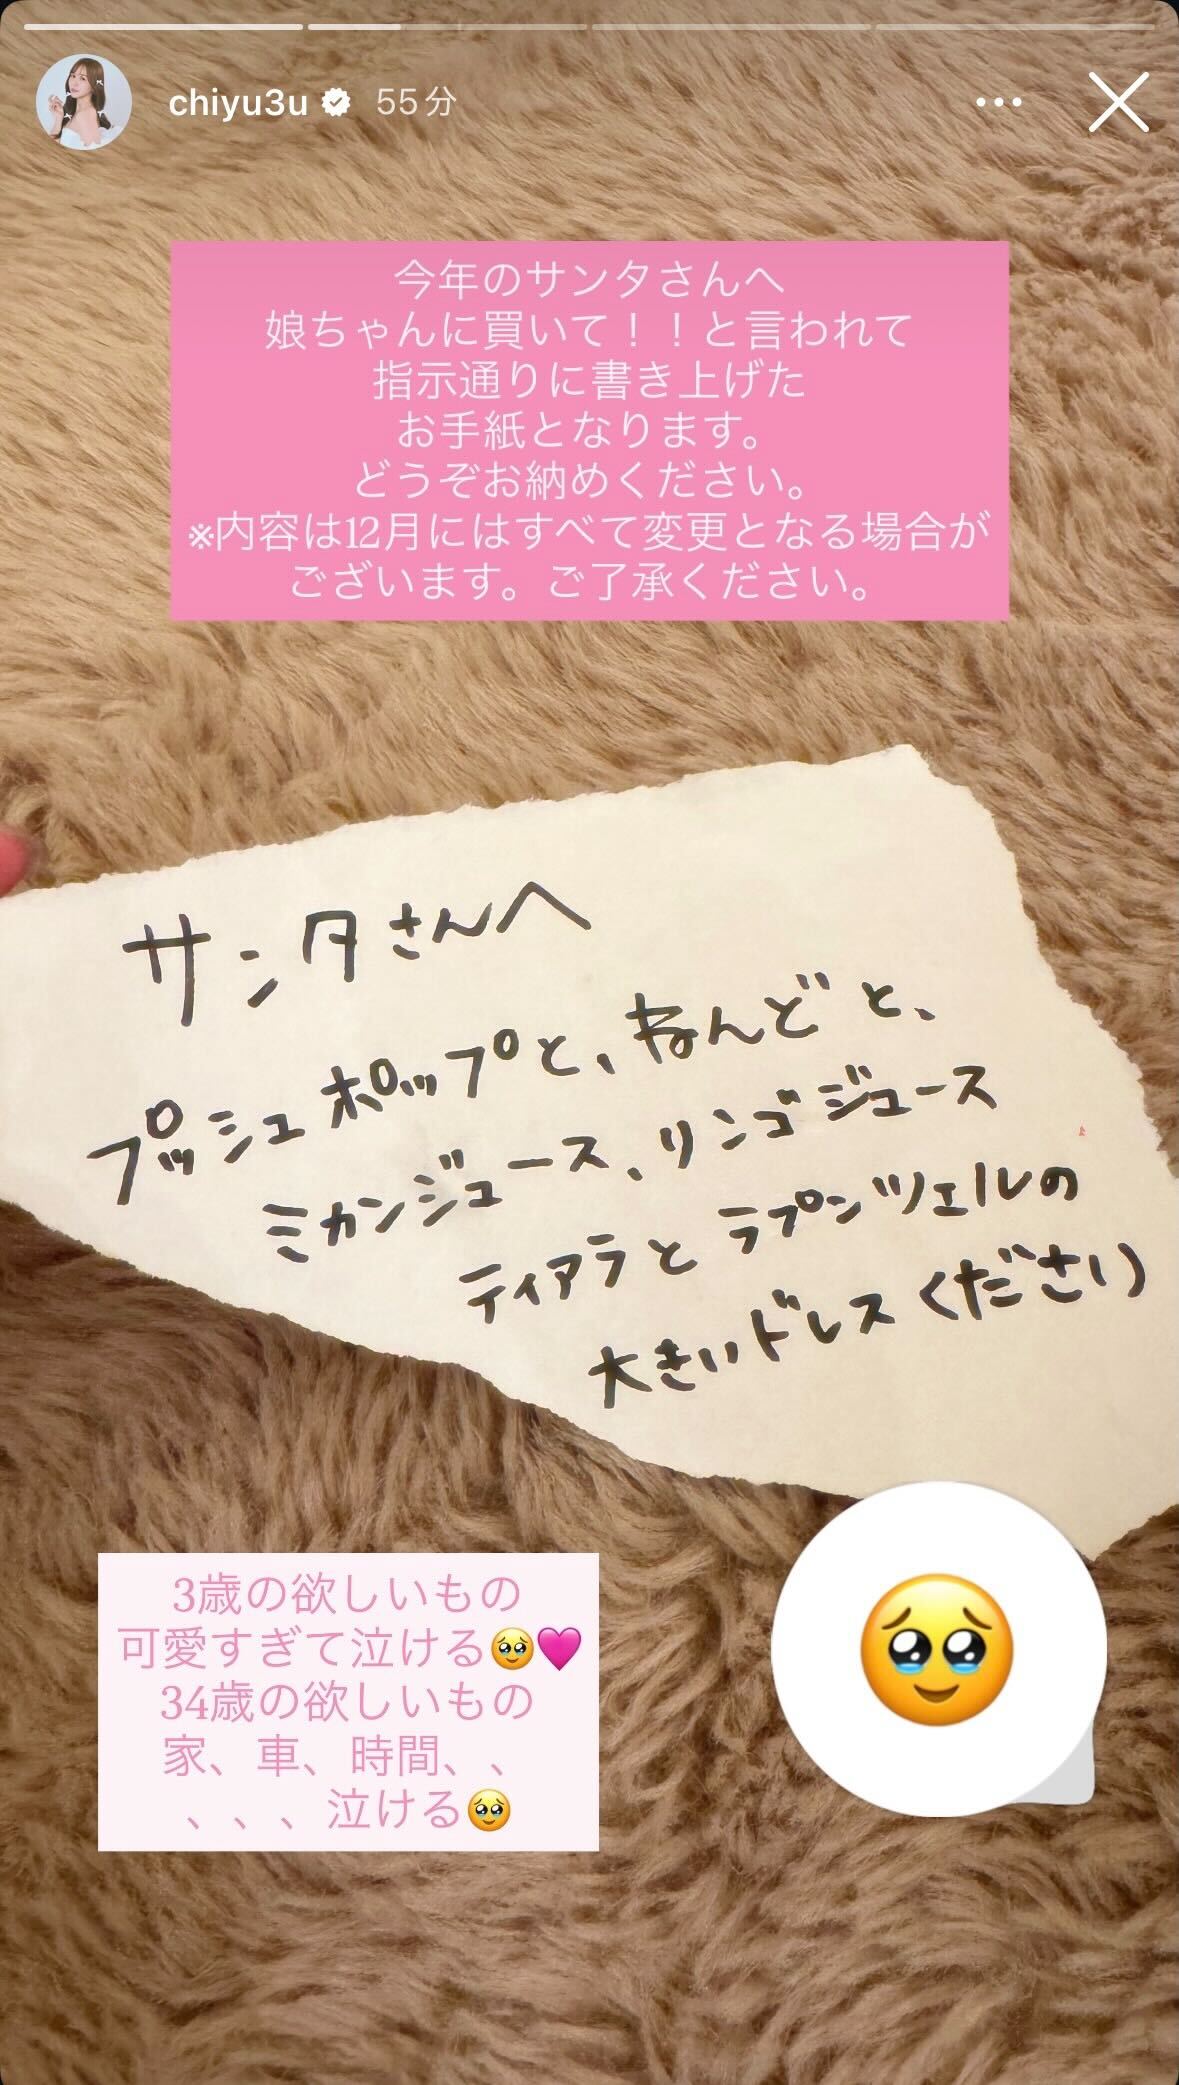 chiyu3u 55分
今年のサンタさんへ
娘ちゃんに買いて！！と言われて
指示通りに書き上げた
お手紙となります。
どうぞお納めください。
※内容は12月にはすべて変更となる場合が
ございます。ご了承ください。
サンタさんへ
プッシュポップと、ねんどと、
ミカンジュース、リンゴジュース
ティアラとラプンツェルの
大きいドレスください
3歳の欲しいもの
可愛すぎて泣ける🥹🩷
34歳の欲しいもの
家、車、時間、、
、、、、泣ける🥹